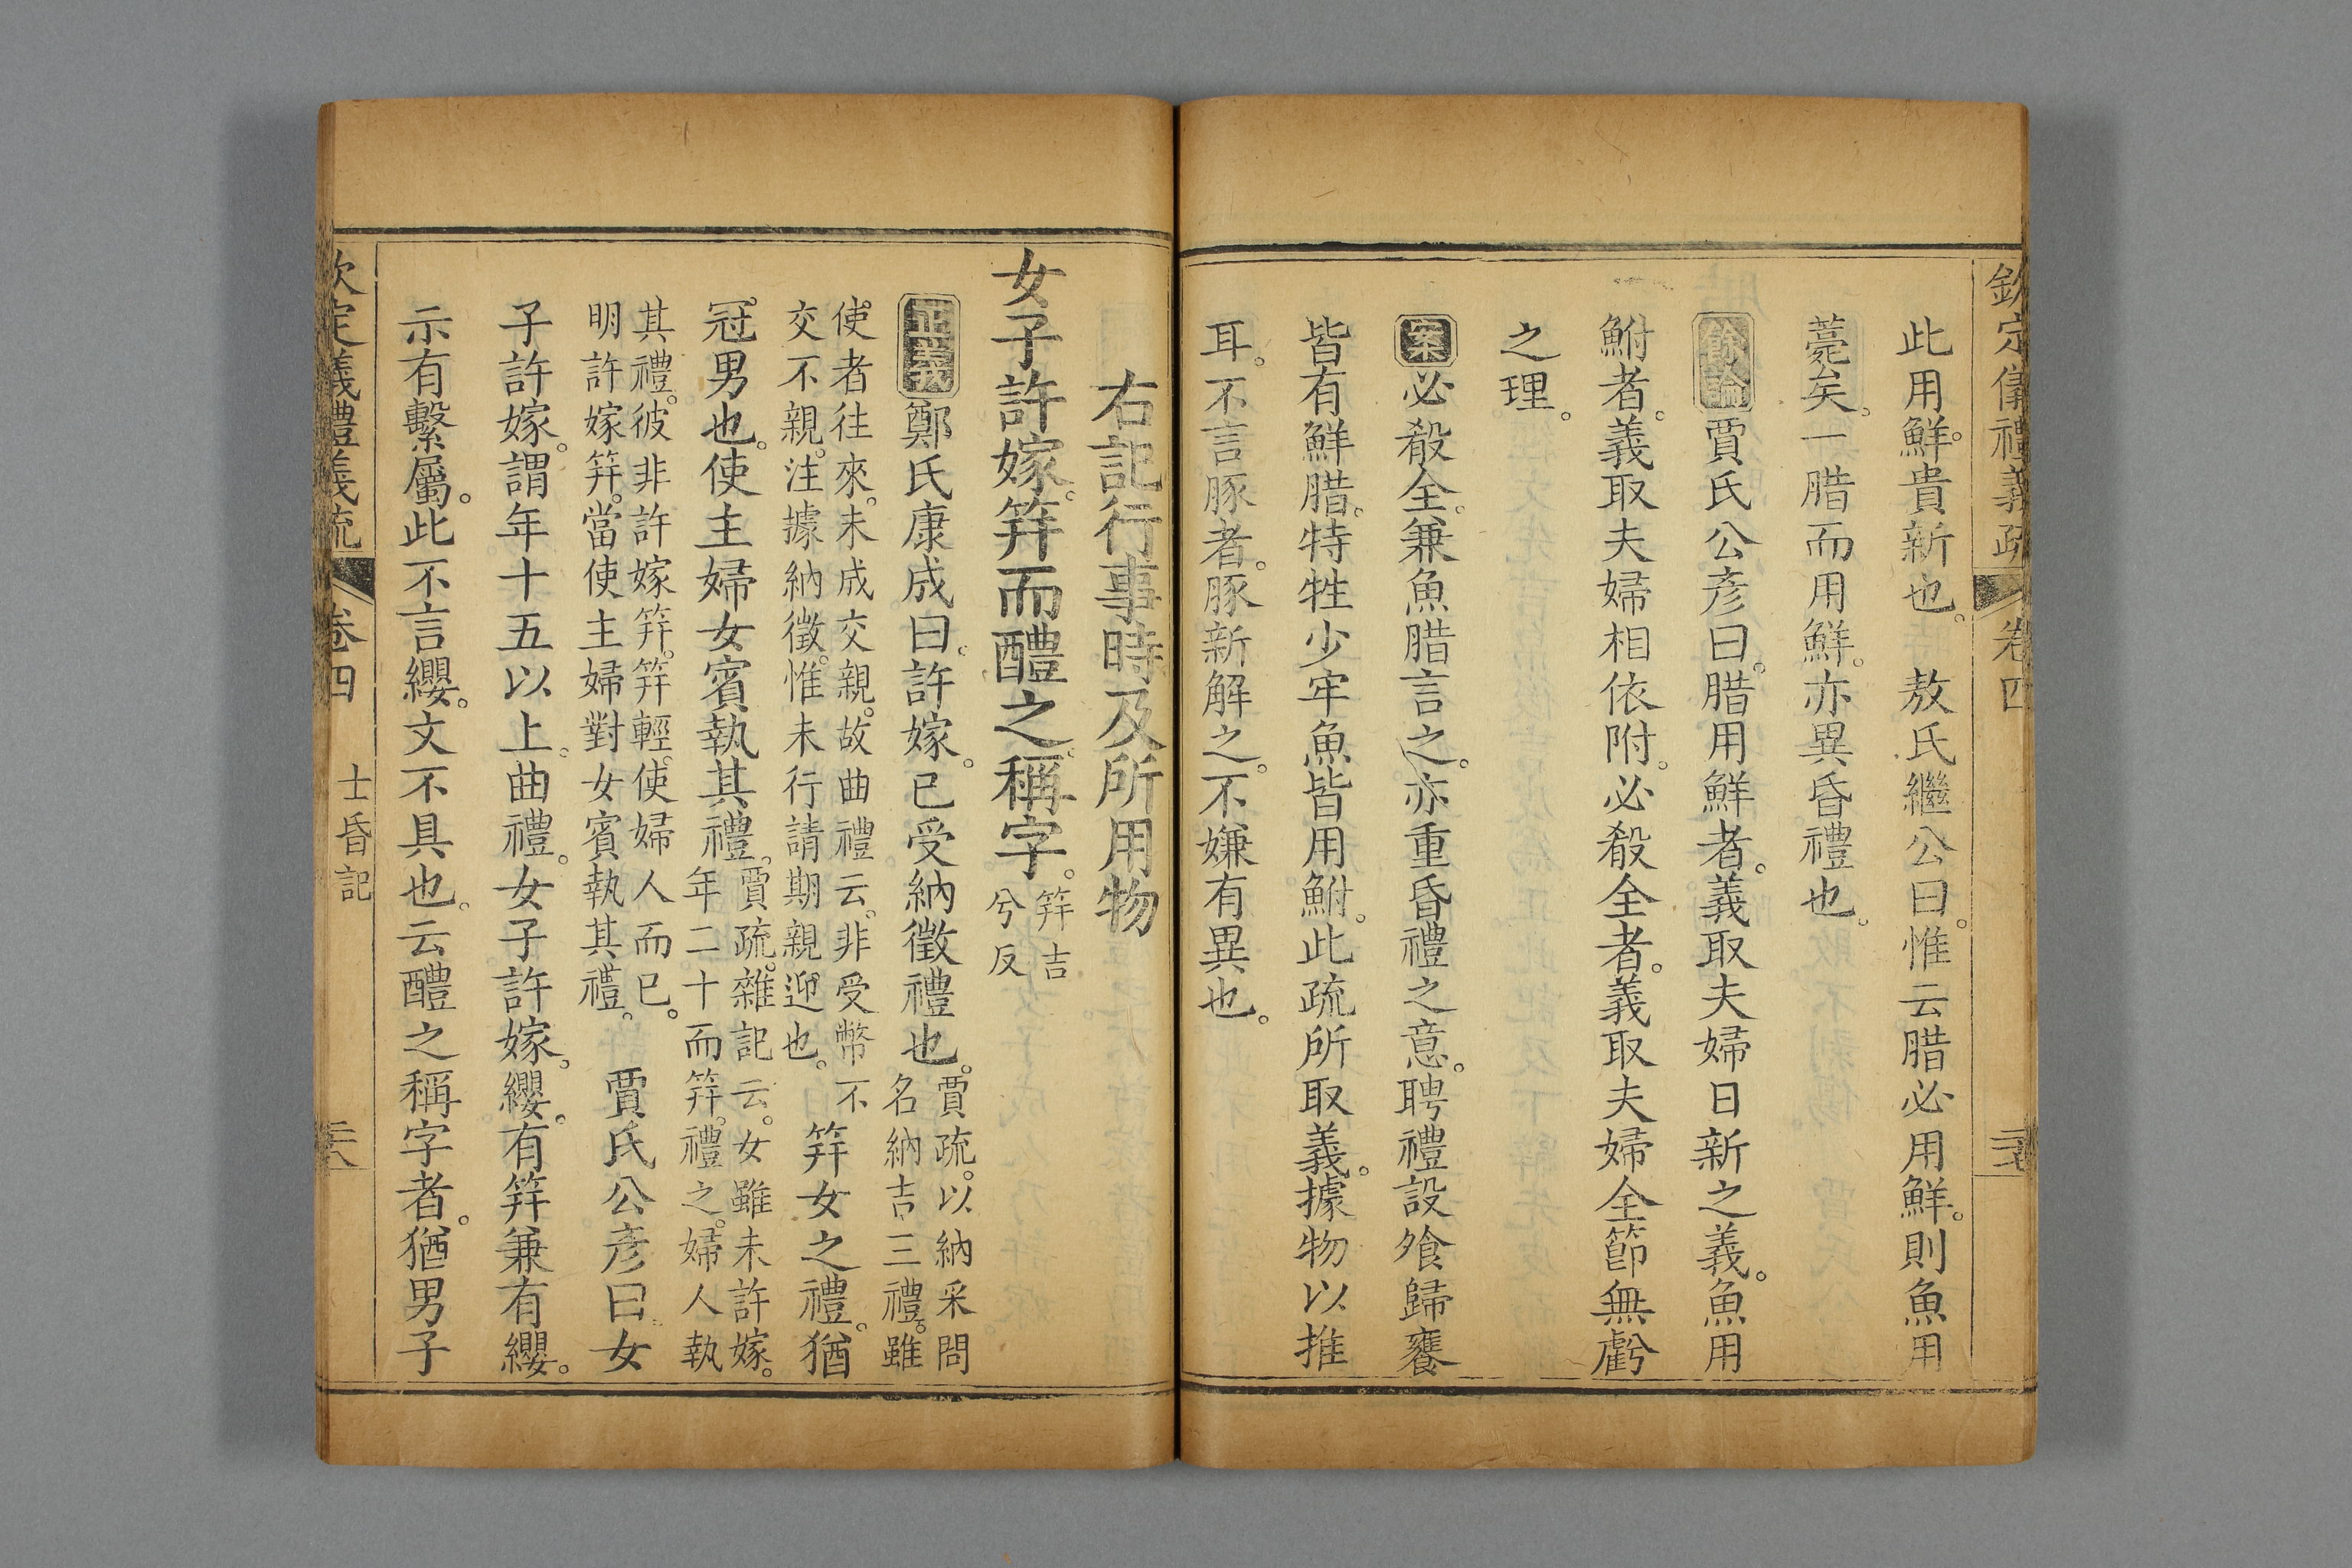 欽定儀禮義疏 卷四 二十七
此用鮮。貴新也。 敖氏繼公曰。惟云腊必用鮮。則魚用
薧矣。一腊而用鮮。亦異昏禮也。
餘論 賈氏公彥曰。腊用鮮者。義取夫婦日新之義。魚用
鮒者。義取夫婦相依附。必殽全者。義取夫婦全節無虧
之理。
案 必殽全。兼魚腊言之。亦重昏禮之意。聘禮設飧歸饔
皆有鮮腊。特牲少牢魚皆用鮒。此疏所取義。據物以推
耳。不言豚者。豚新解之。不嫌有異也。
右記行事時及所用物
女子許嫁。筓而醴之。稱字。筓吉
兮反
正義 鄭氏康成曰。許嫁。已受納徵禮也。賈疏。以納采問
名納吉三禮。雖
使者往來。未成交親。故曲禮云。非受幣不
交不親。注據納徵。惟未行請期親迎也。
筓女之禮。猶
冠男也。使主婦女賓執其禮。賈疏。雜記云。女雖未許嫁。
年二十而筓。禮之。婦人執
其禮。彼非許嫁筓。筓輕。使婦人而已。
明許嫁筓。當使主婦對女賓執其禮。
賈氏公彥曰。女
子許嫁。謂年十五以上。曲禮。女子許嫁。纓。有筓兼有纓。
示有繫屬。此不言纓。文不具也。云醴之稱字者。猶男子
欽定儀禮義疏 卷四 士昏記 二十八